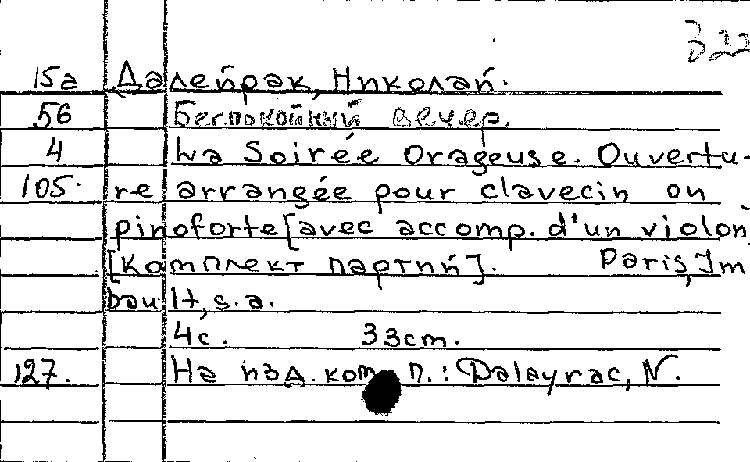 322
15а Далейрак, Николай.
56 Беспокойный вечер
4 La Soirée Orageuse. Ouvertu-
105. re arrangée pour clavecin ou
pinoforte [avec accomp. d'un violon]
[Комплект партий]. Paris, Im
bault, s.a.
4с. 33cm.
127. На изд. ком п.: Dalayrac, N.